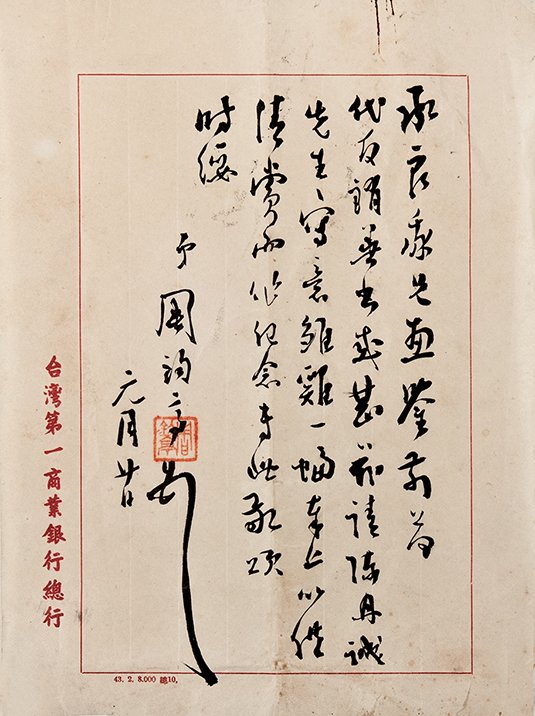 承良吾兄惠鑒前蒙
代友銷善書或甚感茲請陳丹誠
先生寫意雛雞一幅奉上以供
清賞而作紀念專此敬頌
時綏
弟
周詢
元月廿日
台灣第一商業銀行總行
43. 2. 8.000 總10,